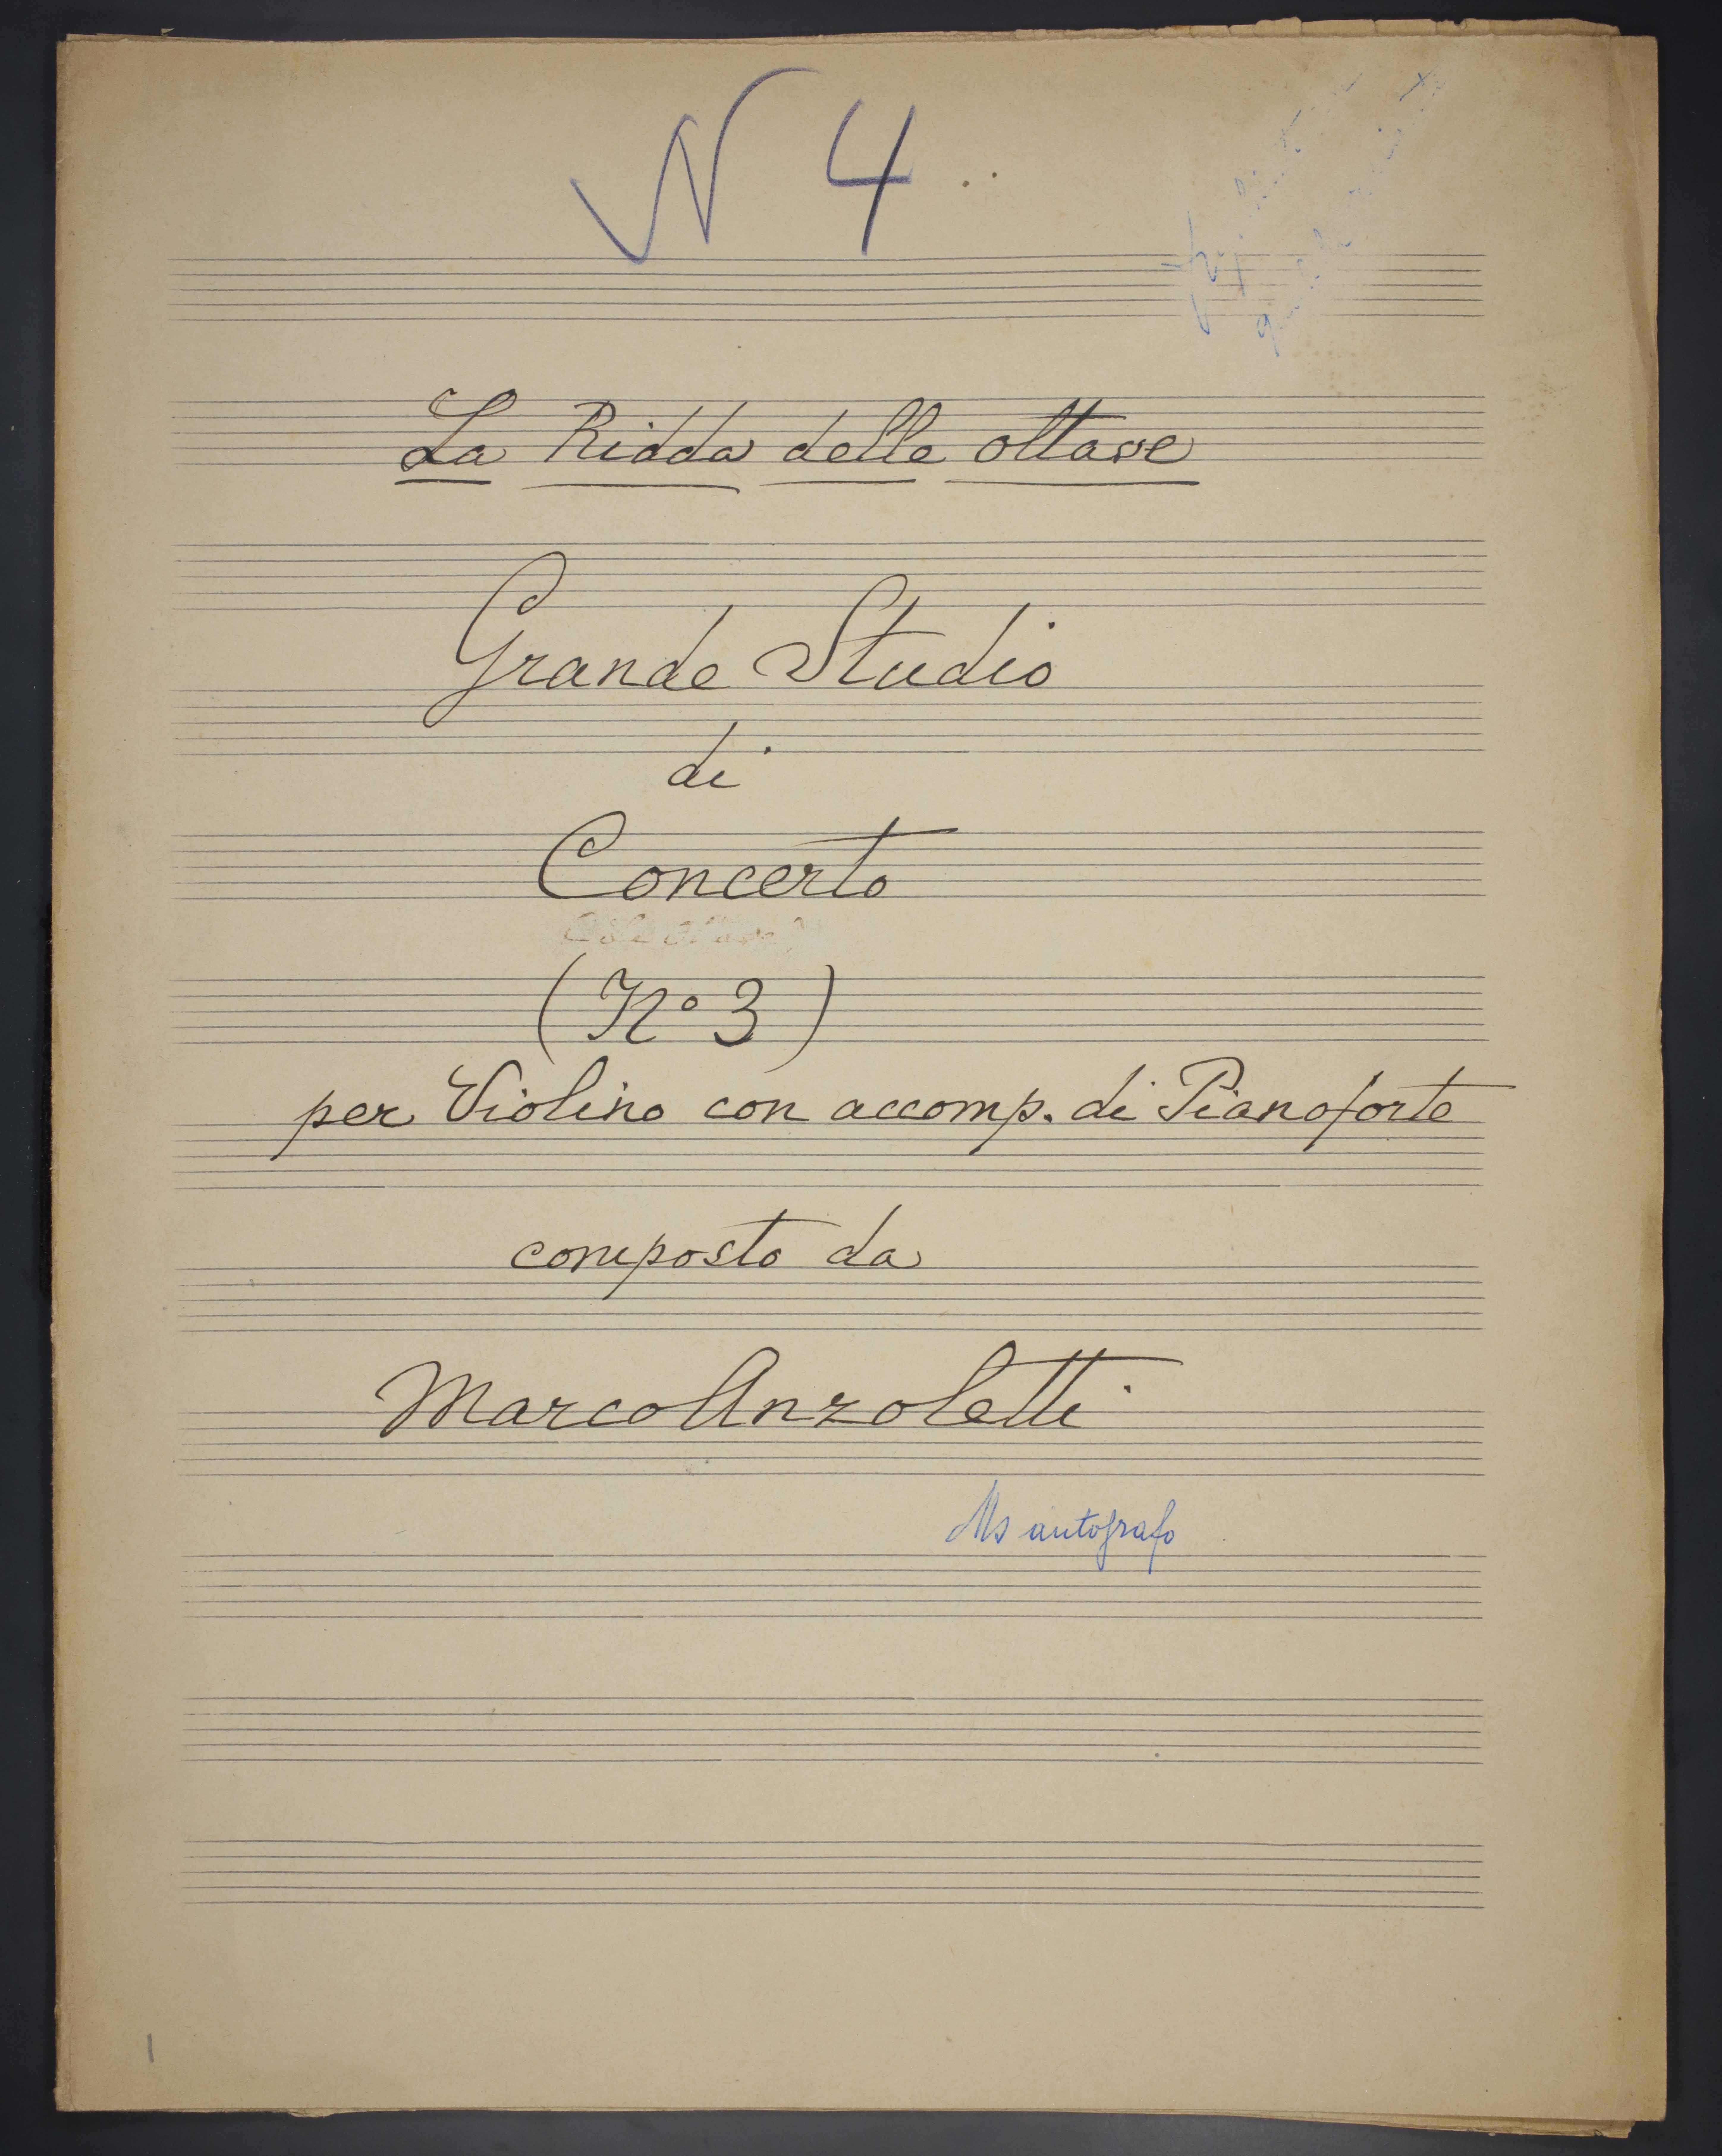 N 4
La Ridda delle ottave
Grande Studio
di
Concerto
(No 3)
per Violino con accomp. di Pianoforte
composto da
Marco Anzoletti
Ms autografo
1